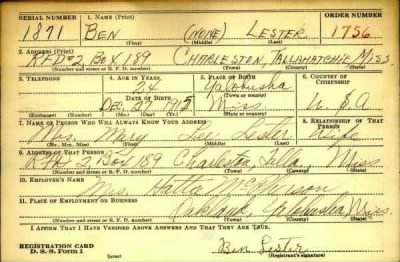 SERIAL NUMBER 1. NAME (Print) ORDER NUMBER
1871 BEN (NONE) LESTER 1756
(First) (Middle) (Last)
2. ADDRESS (Print)
RFD #2 Box 189 CHARLESTON, TALLAHATCHIE, MISS.
(Number and street or R. F. D. number) (Town) (County) (State)
3. TELEPHONE 4. AGE IN YEARS 5. PLACE OF BIRTH 6. COUNTRY OF CITIZENSHIP
24 Yalobusha
DATE OF BIRTH (Town or county)
Dec. 27 1915 Miss. U S A
(Exchange) (Number) (Mo.) (Day) (Yr.) (State or country)
7. NAME OF PERSON WHO WILL ALWAYS KNOW YOUR ADDRESS 8. RELATIONSHIP OF THAT PERSON
Mrs. Mary Lester Wife
(Mr., Mrs., Miss) (First) (Middle) (Last)
9. ADDRESS OF THAT PERSON
RFD 2 Box 189 Charleston Miss.
(Number and street or R. F. D. number) (Town) (County) (State)
10. EMPLOYER'S NAME
Mrs.
11. PLACE OF EMPLOYMENT OR BUSINESS
Oakland, Yalobusha, Miss.
(Number and street or R. F. D. number) (Town) (County) (State)
I AFFIRM THAT I HAVE VERIFIED ABOVE ANSWERS AND THAT THEY ARE TRUE.
REGISTRATION CARD
D. S. S. Form 1 Ben Lester
(over) (Registrant's signature)